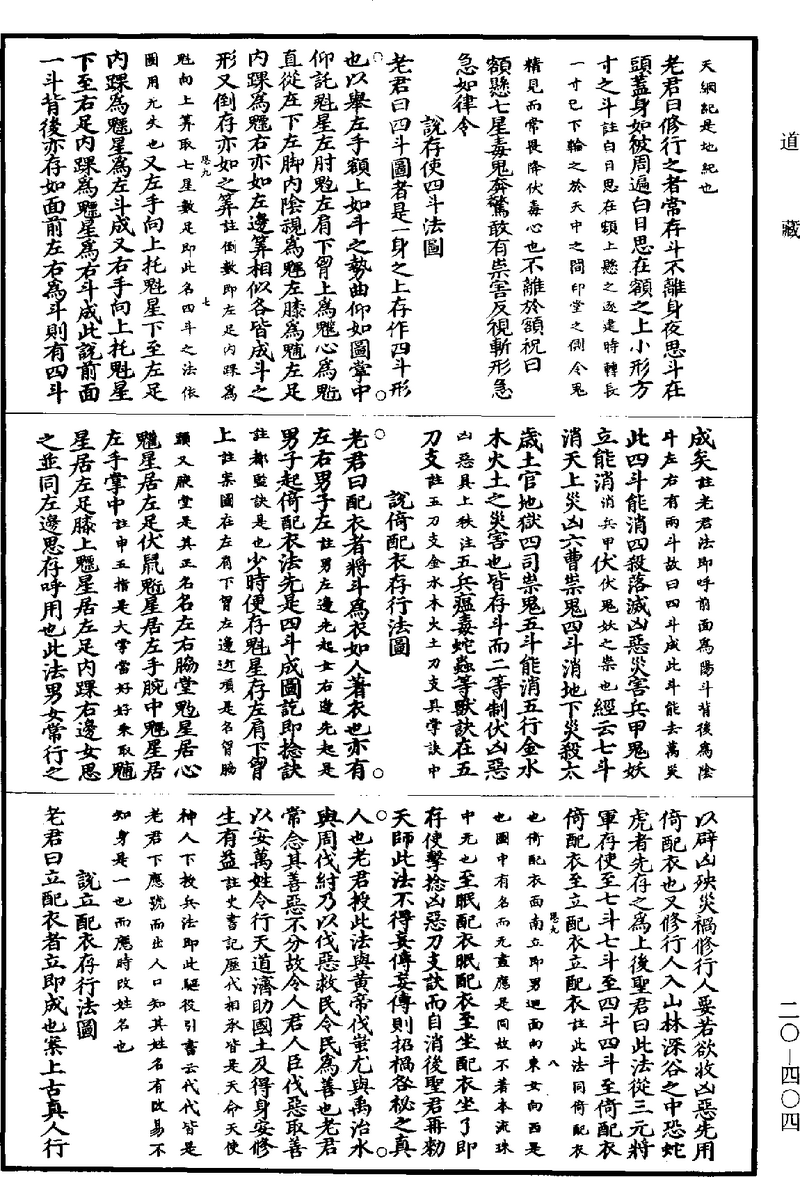 道藏
天綱紀是地紀也
老君曰修行之者常存斗不離身夜思斗在
頭蓋身如被周遍白日思在額之上小形方
寸之斗註白日思在額上懸之逐建時轉長
一寸已下輪之於天中之間印堂之側令鬼
精見而常畏降伏毒心也不離於額祝曰
額懸七星毒鬼奔驚敢有祟害反視斬形急
急如律令
說存使四斗法圖
老君曰四斗圖者是一身之上存作四斗形
也以舉左手額上如斗之勢曲仰如圖掌中
仰託魁星左肘魀左肩下胷上為魋心為魁
直從左下左脚内陰視為魋左膝為魋左足
内踝為魋右亦如左邊筭相似各皆成斗之
形又倒存亦如之筭註倒數即左足内踝為
卷九
七
魁向上筭取七星數足即此名四斗之法依
圖用无失也又左手向上托魁星下至左足
内踝為魋星為左斗成又右手向上托魁星
下至右足内踝為魋星為右斗成此說前面
一斗背後亦存如面前左右為斗則有四斗
成矣註老君法即呼前面為陽斗背後為陰
斗左右有兩斗故曰四斗成此斗能去萬災
此四斗能消四殺落滅凶惡災害兵甲鬼妖
立能消消兵甲伏伏鬼妖之祟也經云七斗
消天上災凶六曹祟鬼四斗消地下災殺太
歲土官地獄四司祟鬼五斗能消五行金水
木火土之災害也皆存斗而二等制伏凶惡
凶惡具上秩注五兵瘟毒蛇蟲等獸訣在五
刀支註五刀支金水木火土刀支具掌訣中
說倚配衣存行法圖
老君曰配衣者將斗為衣如人著衣也亦有
左右男子左註男左邊先起女右邊先起是
男子起倚配衣法先是四斗成圖訖即捻訣
註都監訣是也少時便存魁星存左肩下胷
上註案圖在左肩下胷左邊近項是名胷脇
頭又腴堂是其正名名左右脇堂魀星居心
魋星居左足伏鼠魁星居左手腕中魋星居
左手掌中註申五指是大掌當好好來取魋
星居左足膝上魋星居左足内踝右邊女思
之並同左邊思存呼用也此法男女常行之
以辟凶殃災禍修行人要若欲收凶惡先用
倚配衣也又修行人入山林深谷之中恐蛇
虎者先存之為上後聖君曰此法從三元將
軍存使至七斗七斗至四斗四斗至倚配衣
倚配衣至立配衣立配衣註此法同倚配衣
卷九
八
也倚配衣面南立即男迴面向東女向西是
也圖中有名而无畫應是同故不著本流珠
中元也至眠配衣眠配衣至坐配衣坐了即
存使擊捻凶惡刀支訣而自消後聖君再勑
天師此法不得妄傳妄傳則招禍咎秘之真
人也老君授此法與黃帝伐蚩尤與禹治水
與周伐紂乃以伐惡救民令民為善也老君
常念其善惡不分故令人君人臣伐惡取善
以安萬姓令行天道濟助國土及得身安修
生有益註史書記歷代相承皆是天命天使
神人下教兵法即此驅役引書云代代皆是
老君下應號而出人口知其姓名有改易不
知身是一也而應時改姓名也
說立配衣存行法圖
老君曰立配衣者立即成也案上古真人行
二〇－四〇四